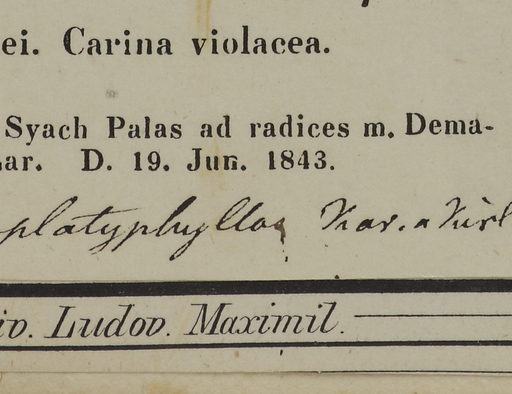 ei. Carina violacea.
Syach Palas ad radices m. Dema-
nar. D. 19. Jun. 1843.
platyphyllos Kar. &
iv. Ludov. Maximil.